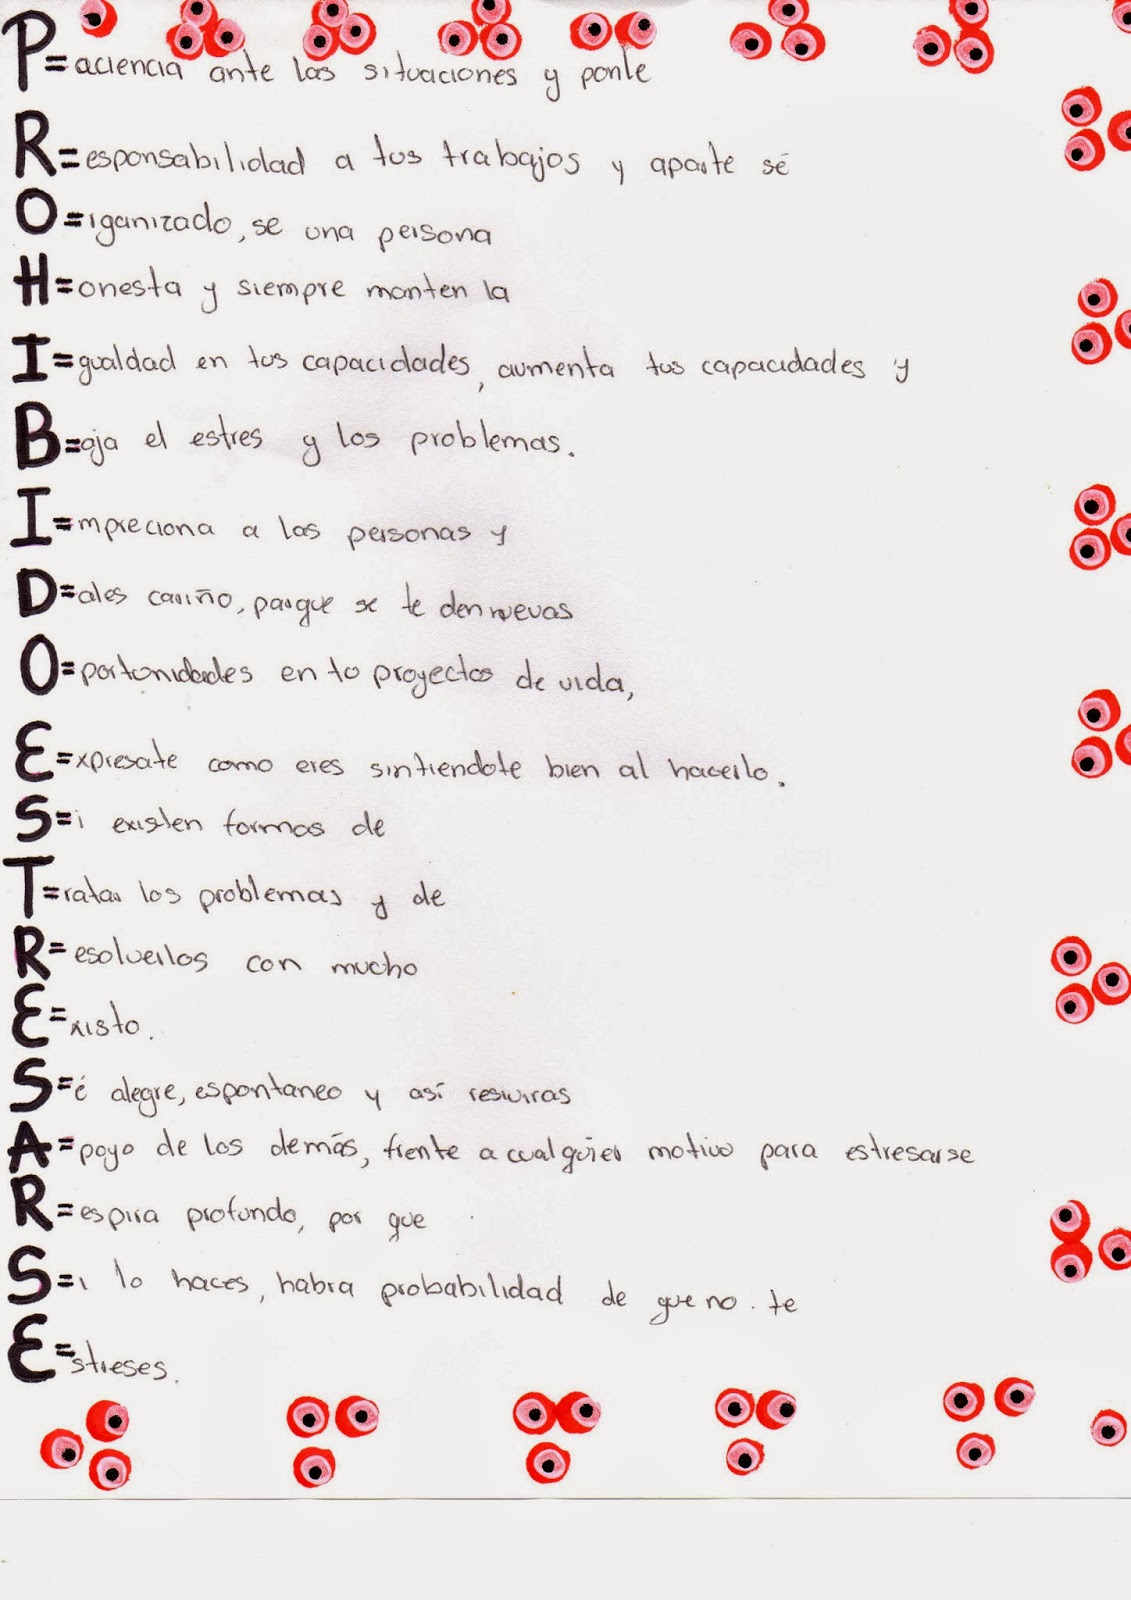 P=aciencia ante las situaciones y ponle
R=esponsabilidad a tus trabajos y aparte sé
O=rganizado, se una persona
H=onesta y siempre manten la
I=gualdad en tus capacidades, aumenta tus capacidades y
B=aja el estres y los problemas.
I=mpreciona a las personas y
D=ales cariño, parque se te den nuevas
O=portunidades en tu proyectos de vida,
E=xpresate como eres sintiendote bien al hacerlo.
S=i existen formas de
T=ratar los problemas y de
R=esolverlos con mucho
E=xisto.
S=é alegre, espontaneo y así resiviras
A=poyo de los demás, frente a cualquier motivo para estresarse
R=espira profundo, por que
S=i lo haces, habra probabilidad de que no te
E=streses.